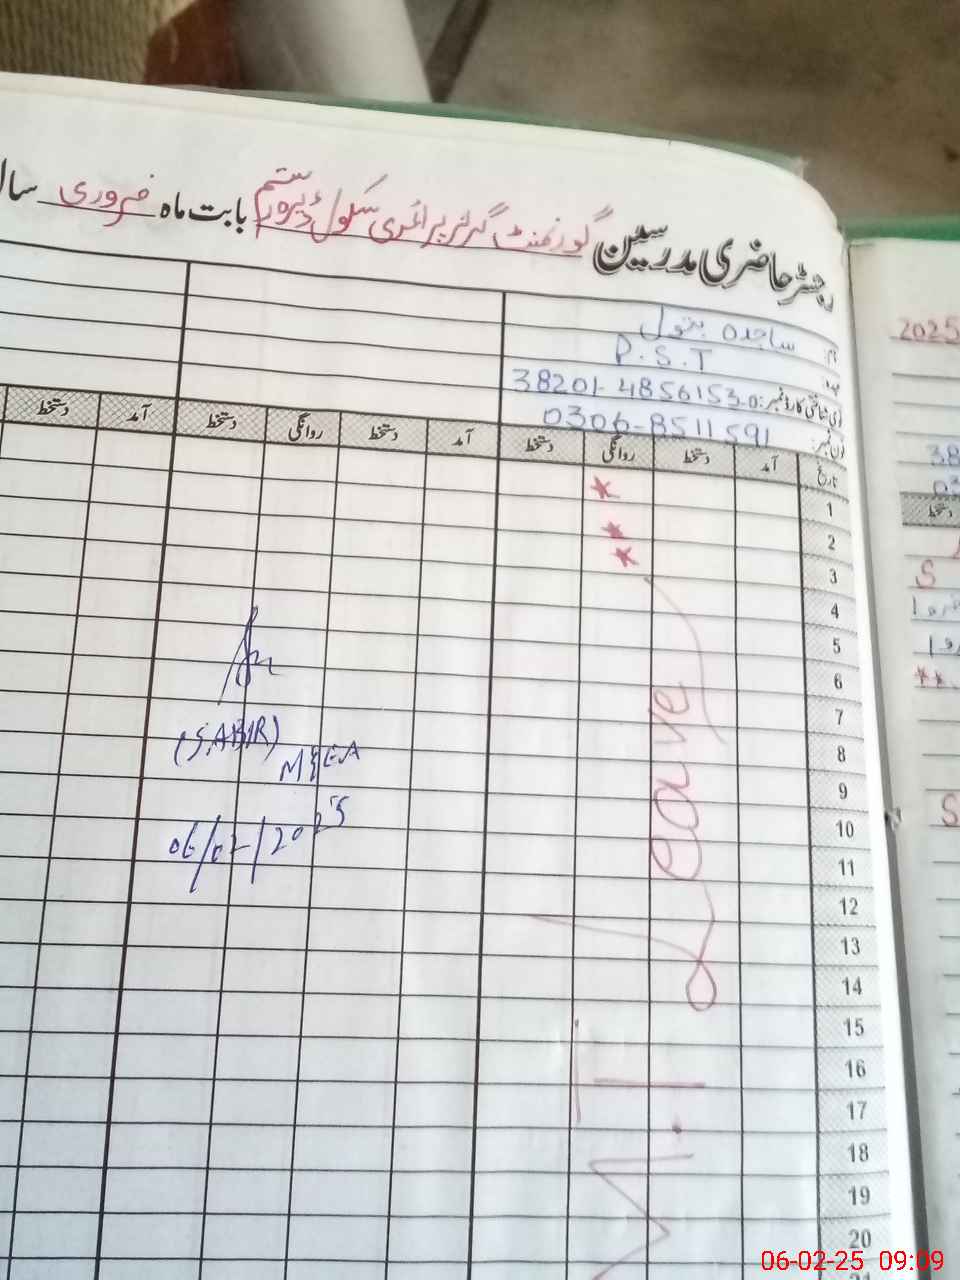 رجسٹر حاضری مدرسین گورنمنٹ گرلز پرائمری سکول بابت ماہ فروری سال
نام: ساجدہ بتول
عہدہ: P.S.T
قومی شناختی کارڈ نمبر: 38201-4856153-0
فون نمبر: 0306-8511591
تاریخ آمد دستخط روانگی دستخط آمد دستخط روانگی دستخط آمد دستخط
1 *
2 *
3 *
4
5
6
7
8
9
10
11
12
13
14
15
16
17
18
19
20
M.T Leave
(SABIR)
MEA
06/02/2025
2025
38
03
دستخط
S
**
S
06-02-25 09:09